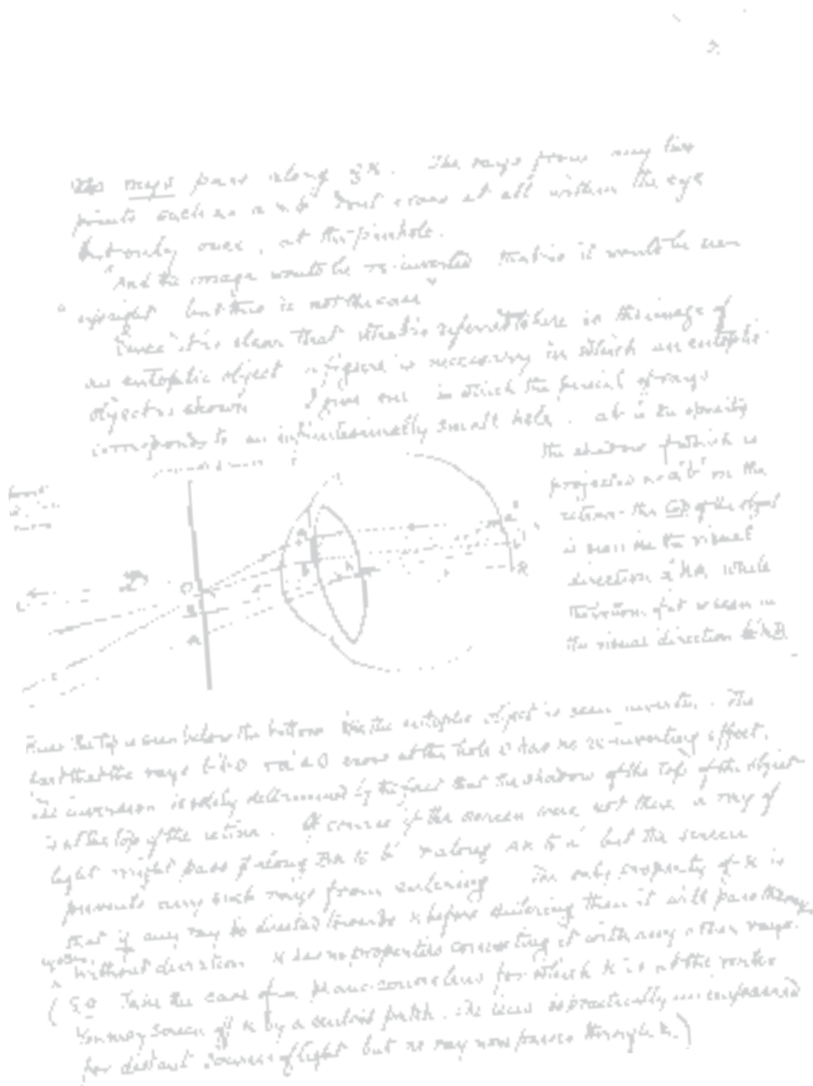 2
rays pass along       . The rays from any two
points such as a & b don't cross at all within the eye
but only once, at the pinhole.
"And the image would be re-inverted that is it would be seen
"upright but this is not the case"
Since it is clear that what is referred to here is the image of
an entoptic object a figure is necessary in which an entoptic
object is shown I give one in which the pencil of rays
corresponds to an infinitesimally small hole. ab is an opacity
the shadow of which is
projected as a'b' on the
retina the top of the object
is seen in the visual
direction a'KA, while
the bottom of it is seen in
the visual direction b'KB.
Hence the top is seen below the bottom the entoptic object is seen inverted. The
fact that the rays b'bO & a'aO cross at the hole O has no re-inverting effect.
The inversion is solely determined by the fact that the shadow of the top of the object
is at the top of the retina. Of course if the screen were not there a ray of
light might pass along BK to b' & along AK to a' but the screen
prevents any such rays from entering The only property of K is
that if any ray be directed towards K before entering then it will pass through
without deviation K has no properties connecting it with any other rays.
(E.g. Take the case of a plano-convex lens for which K is at the vertex
You may screen off K by a central patch. The lens is practically unimpaired
for distant sources of light but no ray now passes through K.)